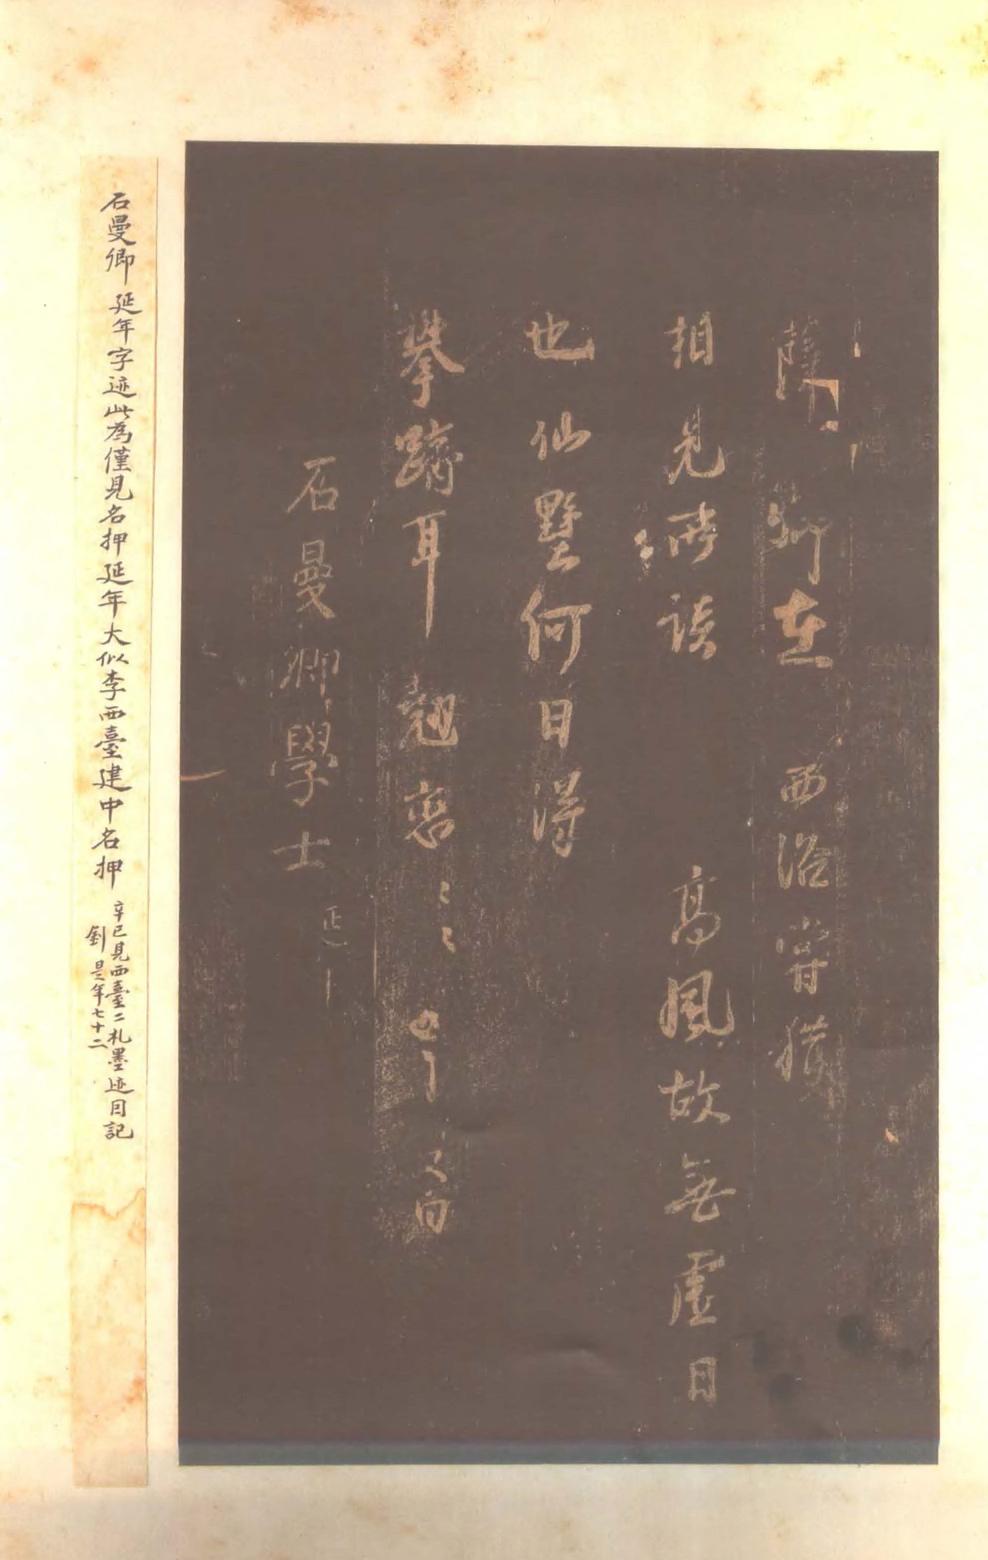 卿在西洛嘗獲
相見所談高風故無虛日
也仙墅何日得
攀躋耳翹戀〻〻
白
石曼卿學士
石曼卿延年字迹此為僅見名押延年大似李西臺建中名押
辛巳見西臺二札墨迹因記
劍是年七十二